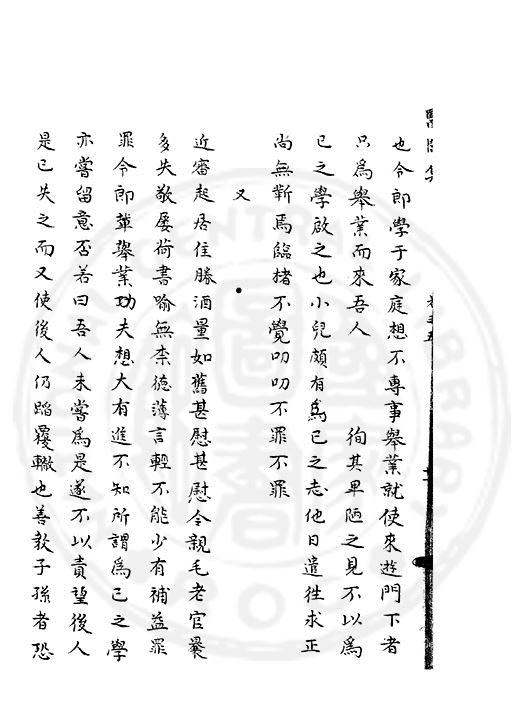 也令郎學于家庭想不專事舉業就使來遊門下者
只為舉業而來吾人 徇其卑陋之見不以為
己之學啟之也小兒頗有為己之志他日遣徃求正
尚無靳焉臨楮不覺叨叨不罪不罪
又
近審起居佳勝酒量如舊甚慰甚慰令親毛老官㬥
多失敬屢荷書喻無柰德薄言輕不能少有補益罪
罪令郎輩舉業功夫想大有進不知所謂為己之學
亦嘗留意否若曰吾人未嘗為是遂不以責望後人
是己失之而又使後人仍蹈覆轍也善教子孫者恐